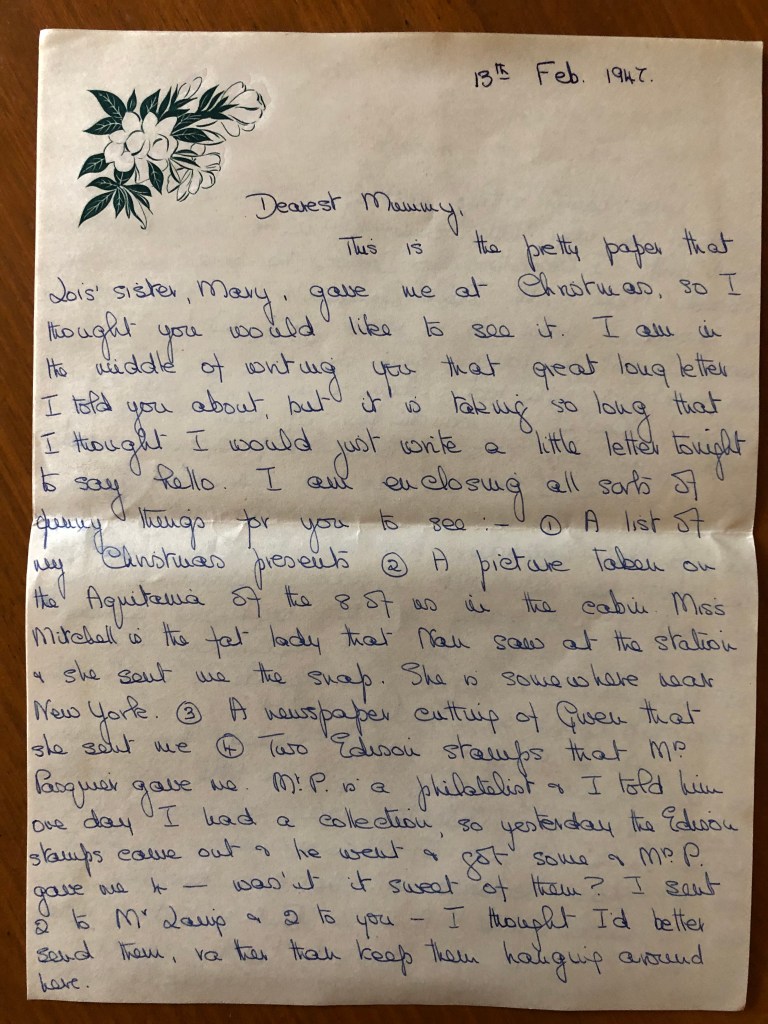 13TH Feb. 1947.
Dearest Mummy,
This is the pretty paper that
Lois' sister, Mary, gave me at Christmas, so I
thought you would like to see it. I am in
the middle of writing you that great long letter
I told you about, but it is taking so long that
I thought I would just write a little letter tonight
to say hello. I am enclosing all sorts of
funny things for you to see :- ① A list of
my Christmas presents ② A picture taken on
the Aquitania of the 8 of us in the cabin. Miss
Mitchell is the fat lady that Nan saw at the station
& she sent me the snap. She is somewhere near
New York. ③ A newspaper cutting of Gwen that
she sent me ④ Two Edison stamps that Mrs
Pasquier gave me. Mr. P. is a philatelist & I told him
one day I had a collection, so yesterday the Edison
stamps came out & he went & got some & Mrs P.
gave me 4 — was'nt it sweet of them? I sent
2 to Mr & 2 to you – I thought I'd better
send them, rather than keep them hanging around
here.